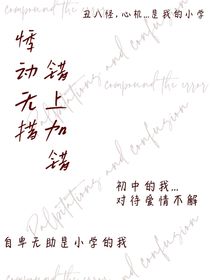 compound the error
丑八怪,心机...是我的小学
悸动无措
错上加错
Palpitations and confusion
初中的我...
对待爱情不解
Palpitations and confusion
自卑无助是小学的我
compound the error